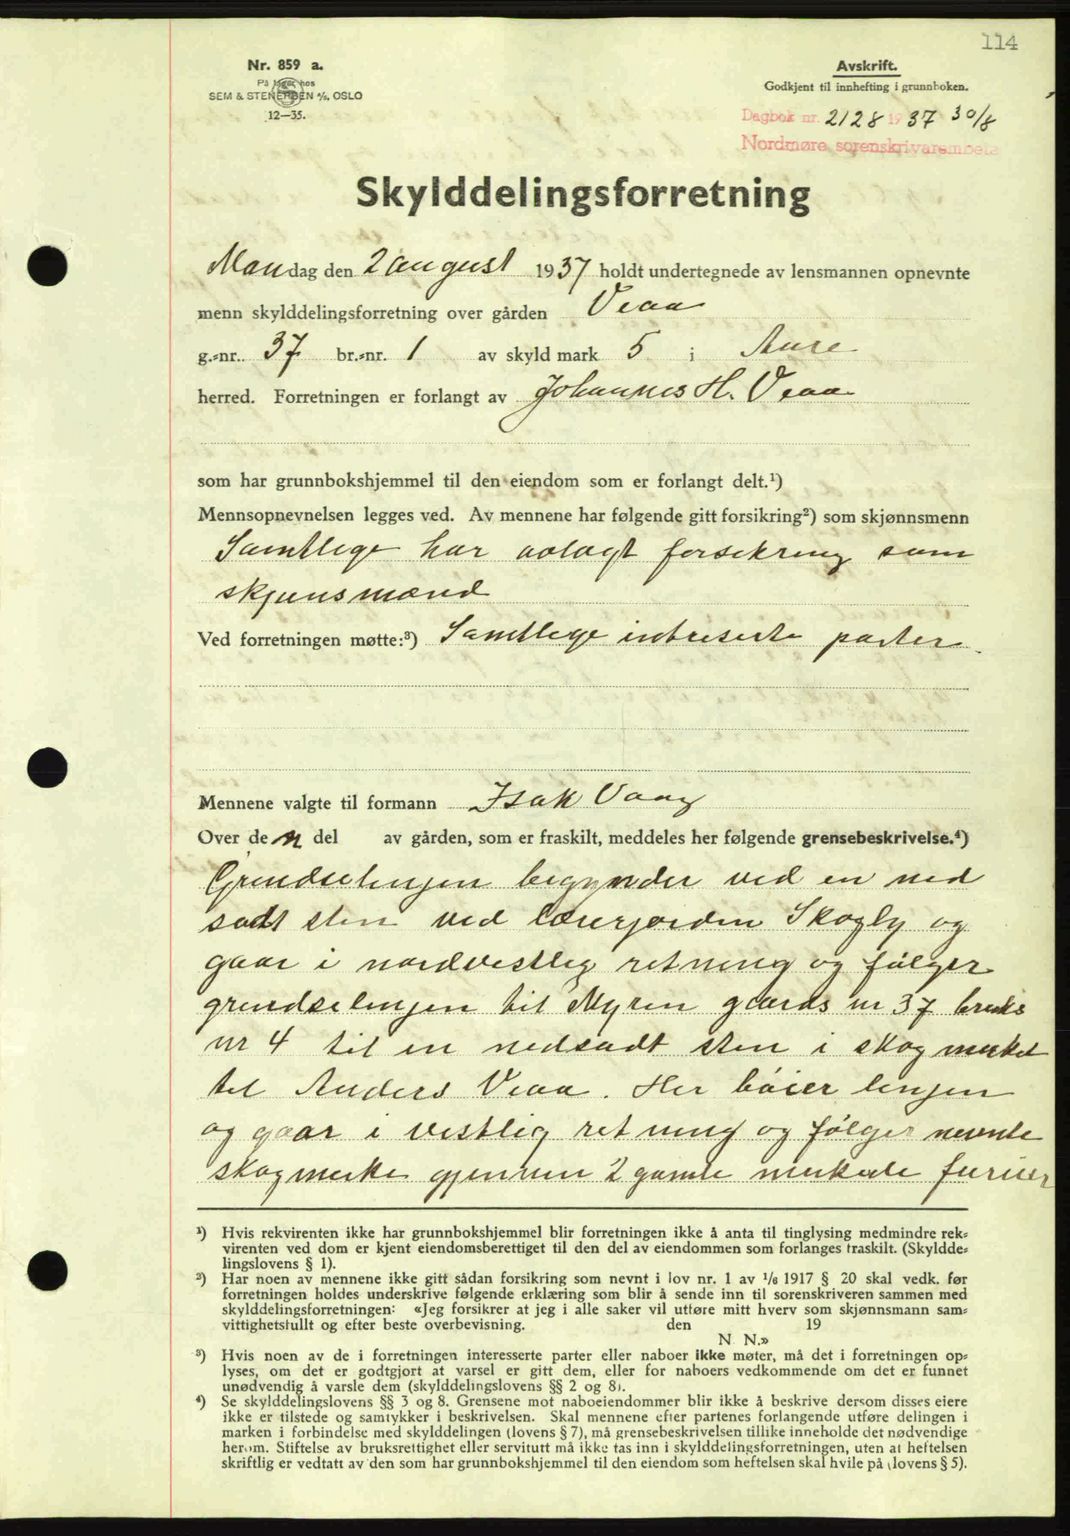 114
Nr. 859 a.
På lager hos
SEM & STENERSEN A/S, OSLO
12—35.
Avskrift.
Godkjent til innhefting i grunnboken.
Dagbok nr. 2128 1937 30/8
Nordmøre sorenskrivarembete
Skylddelingsforretning
Mandag den 2 august 1937 holdt undertegnede av lensmannen opnevnte
menn skylddelingsforretning over gården Veaa
g.=nr. 37 br.=nr. 1 av skyld mark 5 i Aure
herred. Forretningen er forlangt av Johannes H. Veaa
som har grunnbokshjemmel til den eiendom som er forlangt delt.¹)
Mennsopnevnelsen legges ved. Av mennene har følgende gitt forsikring²) som skjønnsmenn
Samtlige har avlagt forsikring som
skjønsmænd
Ved forretningen møtte:³) Samtlige intreserte parter.
Mennene valgte til formann Isak Vaag
Over den del av gården, som er fraskilt, meddeles her følgende grensebeskrivelse.⁴)
Grendselinjen begynder ved en ned
sadt sten ved lærerjorden Skogly og
gaar i nordvestlig retning og følger
grendselinjen til Myren gaards nr 37 bruks
nr 4 til en nedsadt sten i skogmerket
til Anders Veaa. Her bøier linjen
og gaar i vestlig retning og følger nevnte
skogmerke gjennem 2 gamle merkede furuer
¹) Hvis rekvirenten ikke har grunnbokshjemmel blir forretningen ikke å anta til tinglysing medmindre rek=
virenten ved dom er kjent eiendomsberettiget til den del av eiendommen som forlanges fraskilt. (Skyldde=
lingslovens § 1).
²) Har noen av mennene ikke gitt sådan forsikring som nevnt i lov nr. 1 av 1/6 1917 § 20 skal vedk. før
forretningen holdes underskrive følgende erklæring som blir å sende inn til sorenskriveren sammen med
skylddelingsforretningen: «Jeg forsikrer at jeg i alle saker vil utføre mitt hverv som skjønnsmann sam=
vittighetsfullt og efter beste overbevisning. den 19
N. N.»
³) Hvis noen av de i forretningen interesserte parter eller naboer ikke møter, må det i forretningen op=
lyses, om det er godtgjort at varsel er gitt dem, eller for naboers vedkommende om det er funnet
unødvendig å varsle dem (skylddelingslovens §§ 2 og 8).
⁴) Se skylddelingslovens §§ 3 og 8. Grensene mot naboeiendommer blir ikke å beskrive dersom disses eiere
ikke er tilstede og samtykker i beskrivelsen. Skal mennene efter partenes forlangende utføre delingen i
marken i forbindelse med skylddelingen (lovens § 7), må grensebeskrivelsen tillike inneholde det nødvendige
herom. Stiftelse av bruksrettighet eller servitutt må ikke tas inn i skylddelingsforretningen, uten at heftelsen
skriftlig er vedtatt av den som har grunnbokshjemmel til den eiendom som heftelsen skal hvile på (lovens § 5).